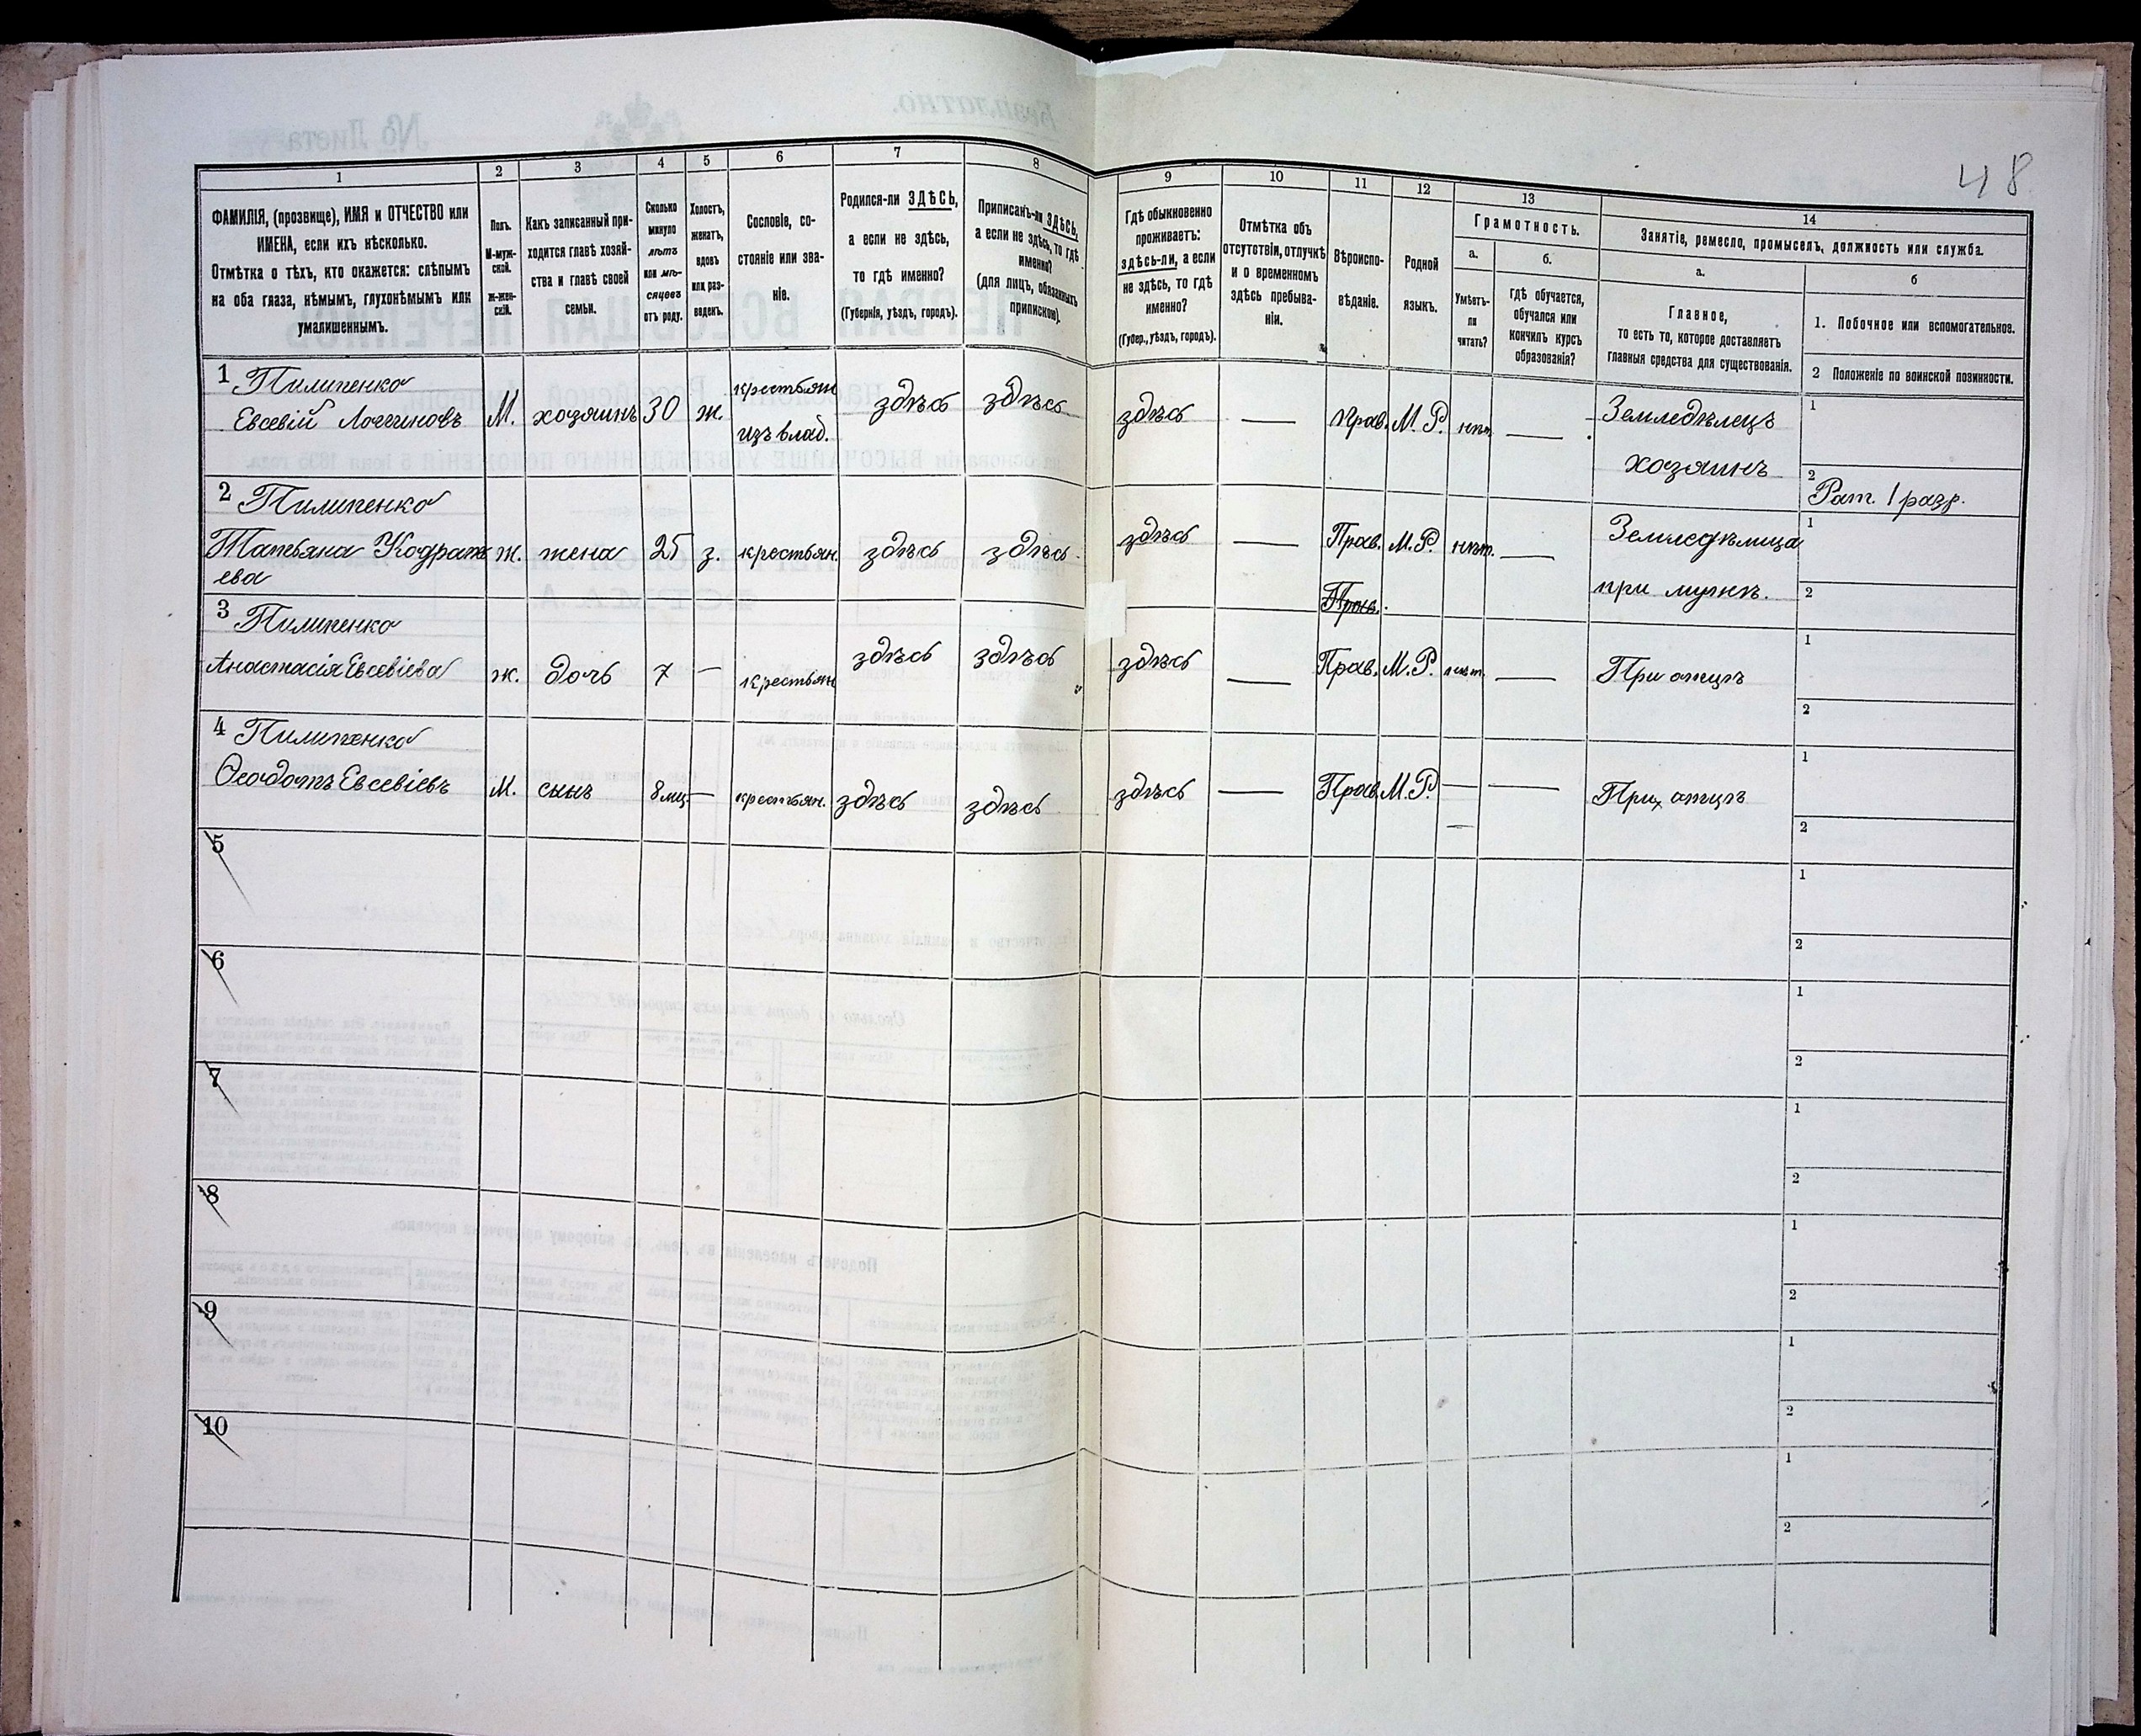 48
1 2 3 4 5 6 7 8 9 10 11 12 13 14
ФАМИЛІЯ, (прозвище), ИМЯ и ОТЧЕСТВО или
ИМЕНА, если ихъ нѣсколько.
Отмѣтка о тѣхъ, кто окажется: слѣпымъ
на оба глаза, нѣмымъ, глухонѣмымъ или
умалишеннымъ.
Полъ.
М-муж-
ской.
Ж-жен-
скій.
Какъ записанный при-
ходится главѣ хозяй-
ства и главѣ своей
семьи.
Сколько
минуло
лѣтъ
или мѣ-
сяцевъ
отъ роду.
Холостъ,
женатъ,
вдовъ
или раз-
веденъ.
Сословіе, со-
стояніе или зва-
ніе.
Родился-ли ЗДѢСЬ,
а если не здѣсь,
то гдѣ именно?
(Губернія, уѣздъ, городъ).
Приписанъ-ли ЗДѢСЬ,
а если не здѣсь, то гдѣ
именно?
(для лицъ, обязанныхъ
припискою).
Гдѣ обыкновенно
проживаетъ:
здѣсь-ли, а если
не здѣсь, то гдѣ
именно?
(Губер., уѣздъ, городъ).
Отмѣтка объ
отсутствіи, отлучкѣ
и о временномъ
здѣсь пребыва-
ніи.
Вѣроиспо-
вѣданіе.
Родной
языкъ.
Грамотность.
а.
Умѣетъ-
ли
читать?
б.
гдѣ обучается,
обучался или
кончилъ курсъ
образованія?
Занятіе, ремесло, промыселъ, должность или служба.
а.
Главное,
то есть то, которое доставляетъ
главныя средства для существованія.
б
1. Побочное или вспомогательное.
2 Положеніе по воинской повинности.
1 Пилипенко
Евсевій Логгиновъ М. хозяинъ 30 ж. крестьян
изъ влад. здѣсь здѣсь здѣсь — Прав. М. Р. нѣт. — Земледѣлецъ
хозяинъ
1
2 Рат. 1 разр.
2 Пилипенко
Татьяна Кодрать
ева ж. жена 25 з. крестьян. здѣсь здѣсь здѣсь — Прав. М.Р. нѣт. — Земледѣлица
при мужѣ.
1
2
Прав.
3 Пилипенко
Анастасія Евсевіева ж. дочь 7 — крестьян здѣсь здѣсь здѣсь — Прав. М.Р. нѣт. — При отцѣ
1
2
4 Пилипенко
Ѳеодотъ Евсевіевъ М. сынъ 8 мц. — крестьян. здѣсь здѣсь здѣсь — Прав. М.Р. — — При отцѣ
1
2
5
1
2
6
1
2
7
1
2
8
1
2
9
1
2
10
1
2